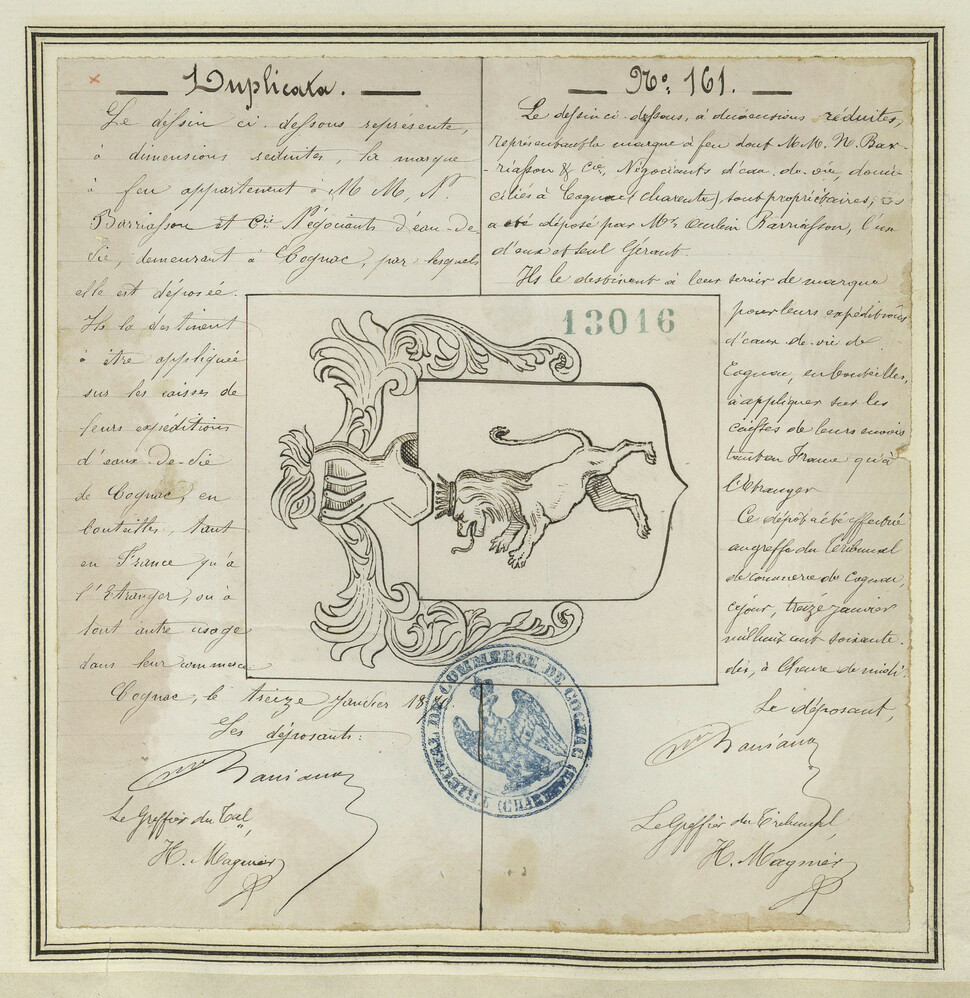 Duplicata.
Le dessin ci-dessous représente,
à dimensions réduites, la marque
à feu appartenant à M M, N.
Barriasson et Cie Négociants d'eau-de-
vie, demeurant à Cognac, par lesquels
elle est déposée.
Ils la destinent
à être appliquée
sur les caisses de
leurs expéditions
d'eaux-de-vie
de Cognac, en
bouteilles, tant
en France qu'à
l'Etranger, ou à
tout autre usage
dans leur commerce.
Cognac, le treize Janvier 1870
Les déposants:
Le Greffier du Tal,
H. Magnier
No. 161.
Le dessin ci-dessous, à dimensions réduites,
représentant la marque à feu dont M M. N. Bar-
-riasson & Cie, Négociants d'eau-de-vie, domi-
ciliés à Cognac (Charente), sont propriétaires,
a été déposé par Mr Barriasson, l'un
d'eux et seul Gérant.
Ils le destinent à leur servir de marque
pour leurs expéditions
d'eaux-de-vie de
Cognac, en bouteilles,
à appliquer sur les
caisses de leurs envois
tant en France qu'à
l'Etranger
Ce dépôt a été effectué
au greffe du Tribunal
de commerce de Cognac,
ce jour, treize janvier
mil huit cent soixante-
dix, à l'heure de midi.
Le déposant,
Le Greffier du Tribunal,
H. Magnier
13016
TRIBUNAL DE COMMERCE DE COGNAC (CHARENTE)